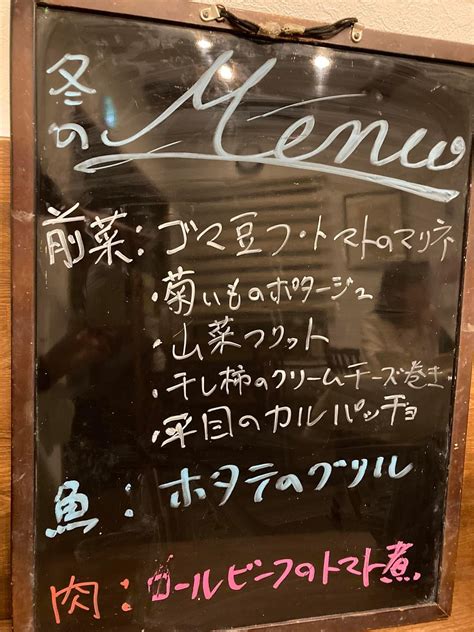 冬の Menu
前菜：ゴマ豆フ・トマトのマリネ
・菊いものポタージュ
・山菜フリット
・干し柿のクリームチーズ巻き
・平目のカルパッチョ
魚：ホタテのグリル
肉：ロールビーフのトマト煮